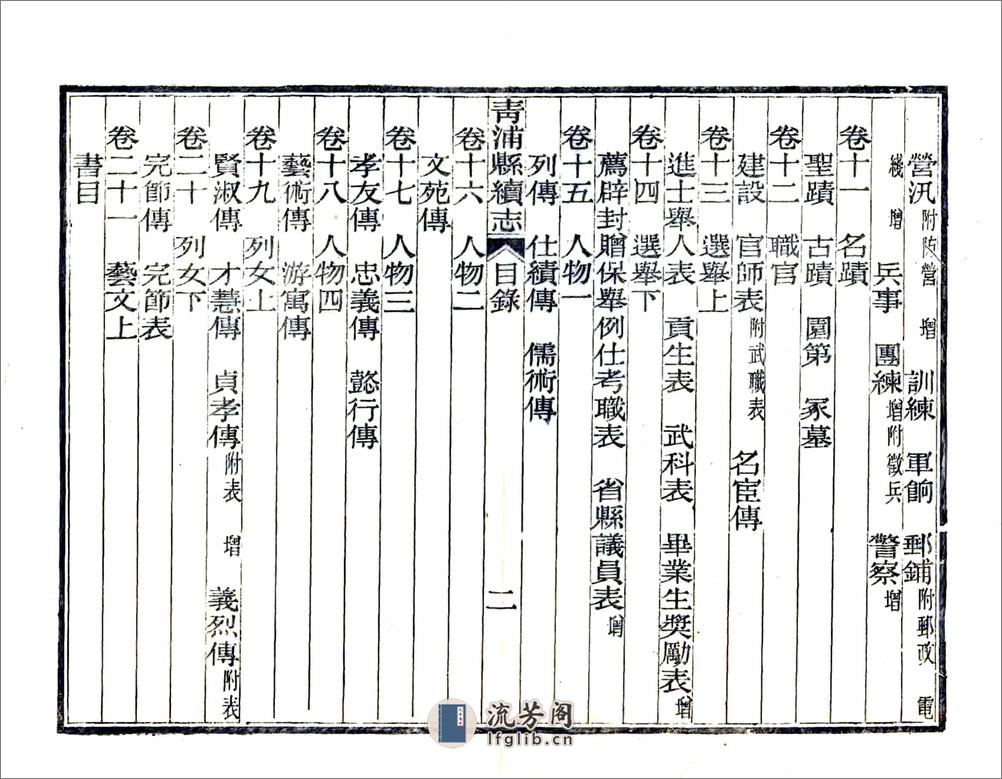 營汛附防營 增 訓練 軍餉 郵鋪附郵政 電
綫 增 兵事 團練增附徵兵 警察增
卷十一 名蹟
聖蹟 古蹟 園第 冢墓
卷十二 職官
建設 官師表附武職表 名宦傳
卷十三 選舉上
進士舉人表 貢生表 武科表 畢業生獎勵表增
卷十四 選舉下
薦辟封贈保舉例仕考職表 省縣議員表增
卷十五 人物一
列傳 仕績傳 儒術傳
青浦縣續志 目錄 二
卷十六 人物二
文苑傳
卷十七 人物三
孝友傳 忠義傳 懿行傳
卷十八 人物四
藝術傳 游寓傳
卷十九 列女上
賢淑傳 才慧傳 貞孝傳附表 增 義烈傳附表
卷二十 列女下
完節傳 完節表
卷二十一 藝文上
書目
流芳阁
lfglib.cn